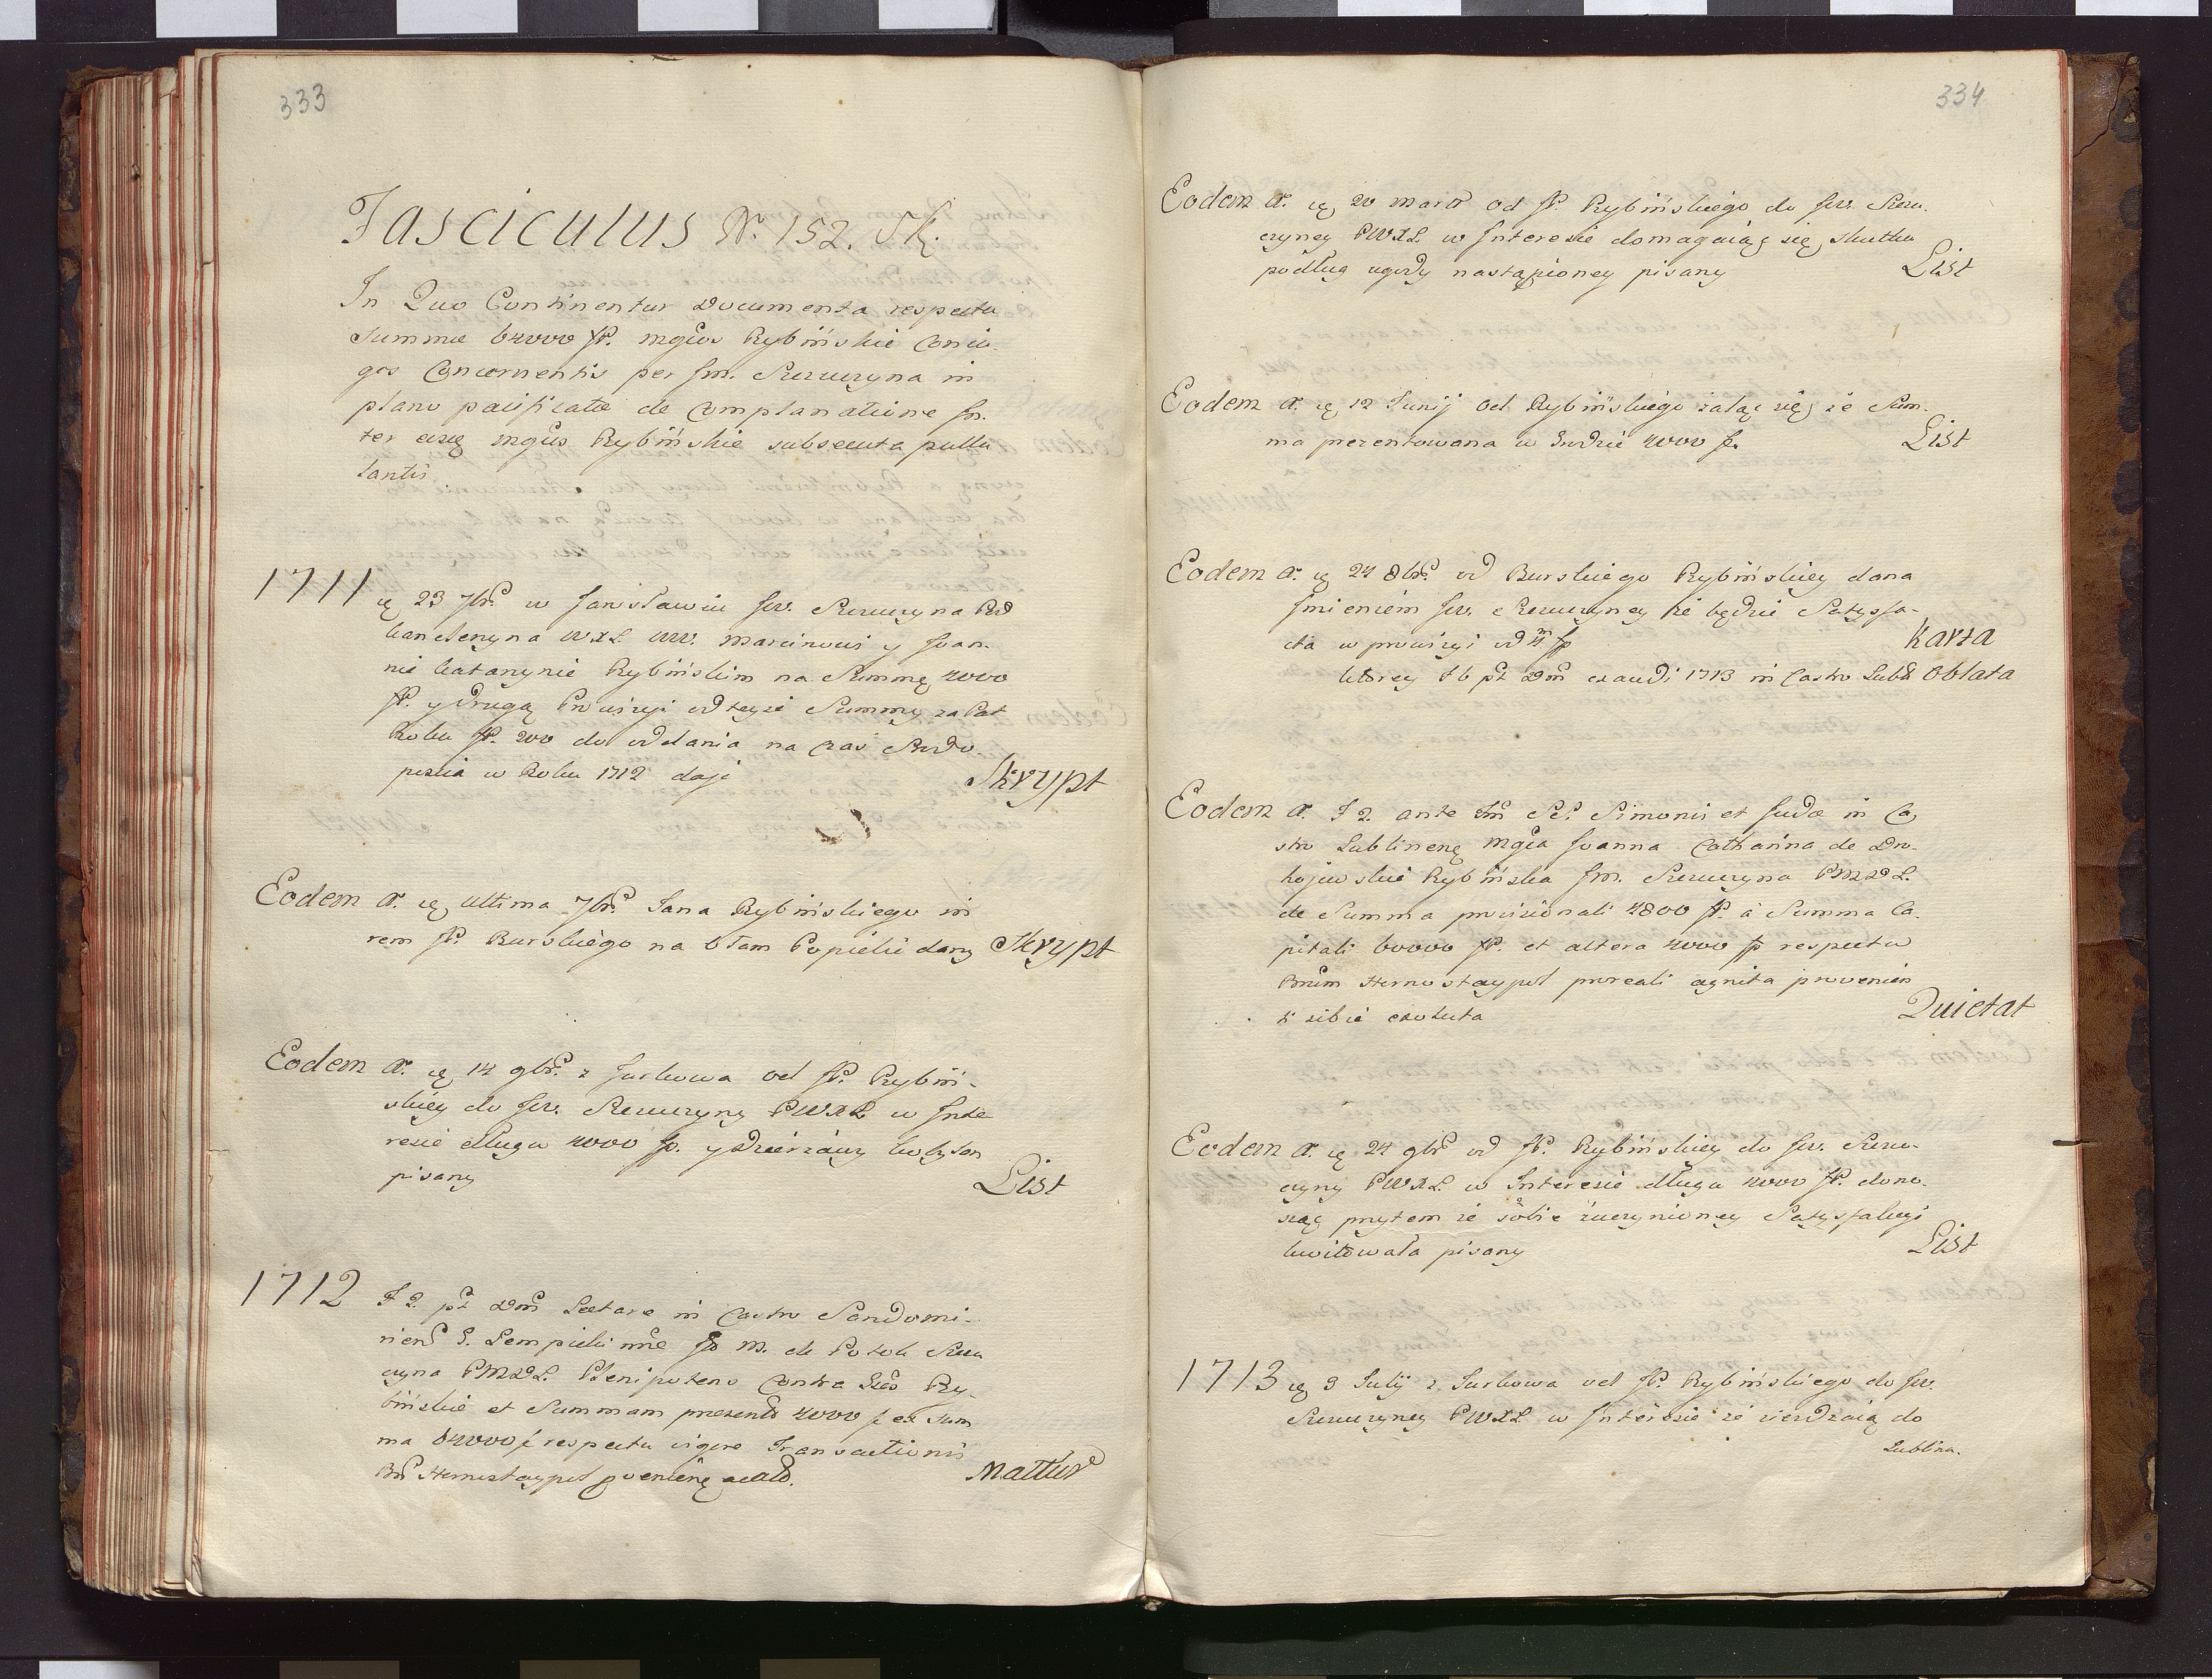 333
Fasciculus Nr. 152. Sk.
In Quo Continentur Documenta respectu
Summae 64000 fP. mgcos Rybińskie Coniu-
ges Concernentis per Jm. Rzewuzyna in
plano pacificatae de Complanatione In-
ter easq mgcos Rybińskie subsecuta pullu
lantis
1711
23 7br. w Jarosławiu Jw. Rzewuzyna Pod
kanclerzyna WXL WW. Marcinowi y Joan-
nie Katarzynie Rybińskim na Summę 4000
fP. y drugą Prowizyi od teyże Summy za Pół
Roku fP. 200 do oddania na czas
w Roku 1712 daje
Skrypt
Eodem a. ultima 7br. Jana Rybińskiego in
rem fP. Burskiego na 6 łam Popielu dany Skrypt
Eodem a. 14 9br. z Jurkowa od fP. Rybiń-
skiey do Jw. Rzewuzyny PWXL w Inte
resie długu 4000 fP. y dzierżawy
pisany
List
1712
F 2. pt Dom Laetare in Castro Sandomi-
riens. de Potok
PMDL. Plenipotens Contra Ry-
bińskie et Summam praesentis 4000 f ex Sum
ma 64000 f respectu vigore Transactionis
Hornostaypol
334
Eodem a. 20 mar. od fP. Rybińskiego do Jw. Rzew-
uzyney PWXL w Interesie domagaiąc się skutku
podług ugody nastąpioney pisany
List
Eodem a. 12 Junij od Rybińskiego żaląc się że Sum-
ma prezentowana w 4000 f.
List
Eodem a. 24 8br. od Burskiego Rybińskiey dana
Imieniem Jw. Rzewuzyney że będzie Satysfa-
cta w prowizyi od 4m fp
Karta
ktorey F 6 pt Dom exaudi 1713 in Castro Lubl Oblata
Eodem a. F 2. ante Fm SS. Simonis et Judae in Ca
stro Lublinens mgca Joanna Catharina de Dro-
hojowskie Rybińska Jm. Rzewuzyna PMDL.
de Summa provisionali 4800 fP. à Summa Ca-
pitali 60000 fP. et altera 4000 fp respectu
Bnum Hornostaypol proreali agnita provenien
ti sibie exoluta
Quietat
Eodem a. 24 9br od fP. Rybińskiey do Jw. Rzew-
uzyny PWXL w Interesie długu 4000 fP. dono-
sząc przytem że sobie uczynioney Satysfakcyi
kwitowała pisany
List
1713 9 Julij z Jurkowa od fP. Rybińskiego do Jw.
Rzewuzyney PWXL w Interesie że zierdzaią do
Lublina.